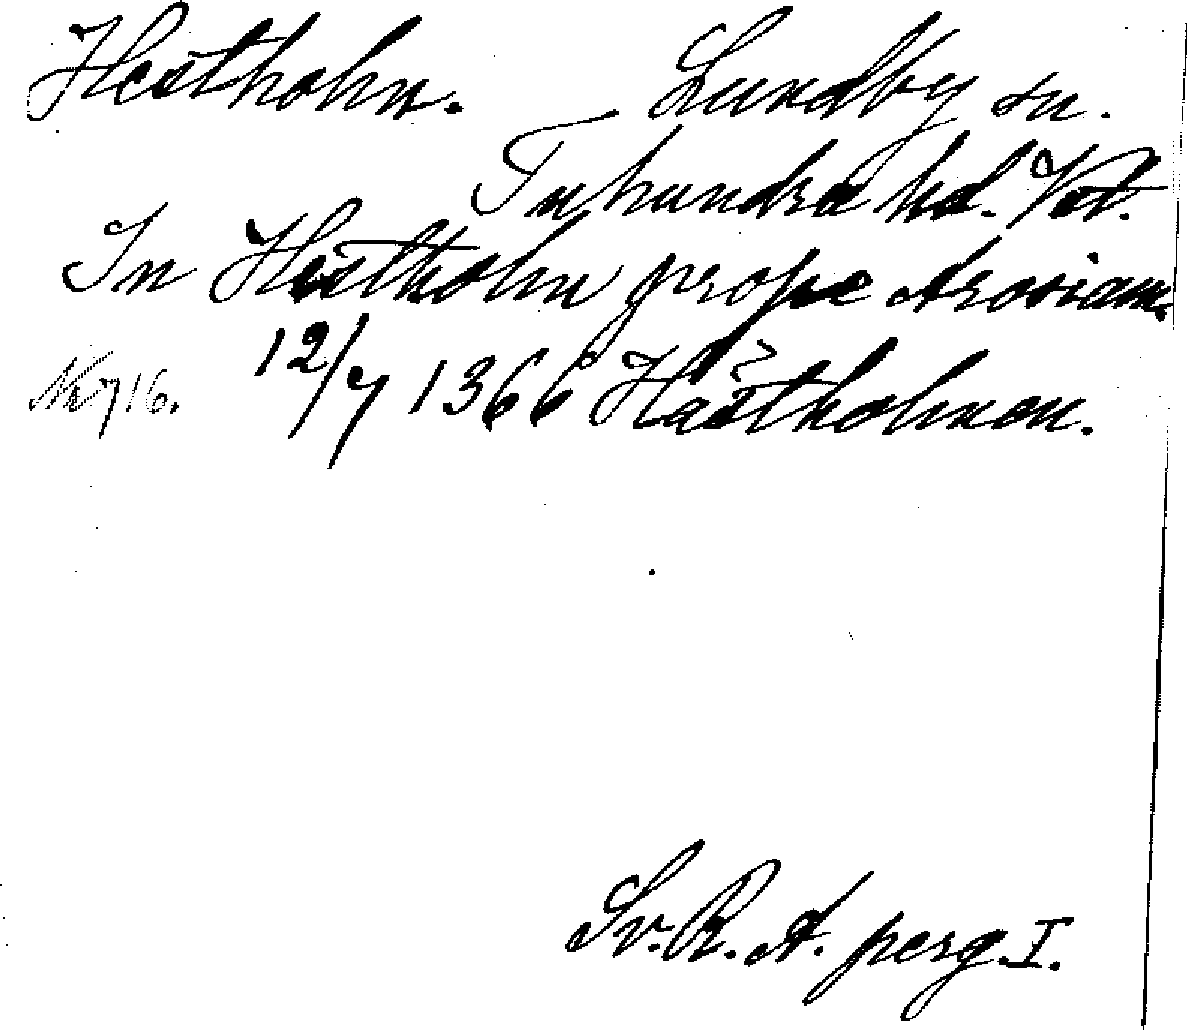 Hestholm. Lundby sn.
Tuhundra hd. Vstl.
In Hestholm prope Arosiam.
Nr 716. 12/7 1366 Hästholmen.
Sv. R. A. perg. I.